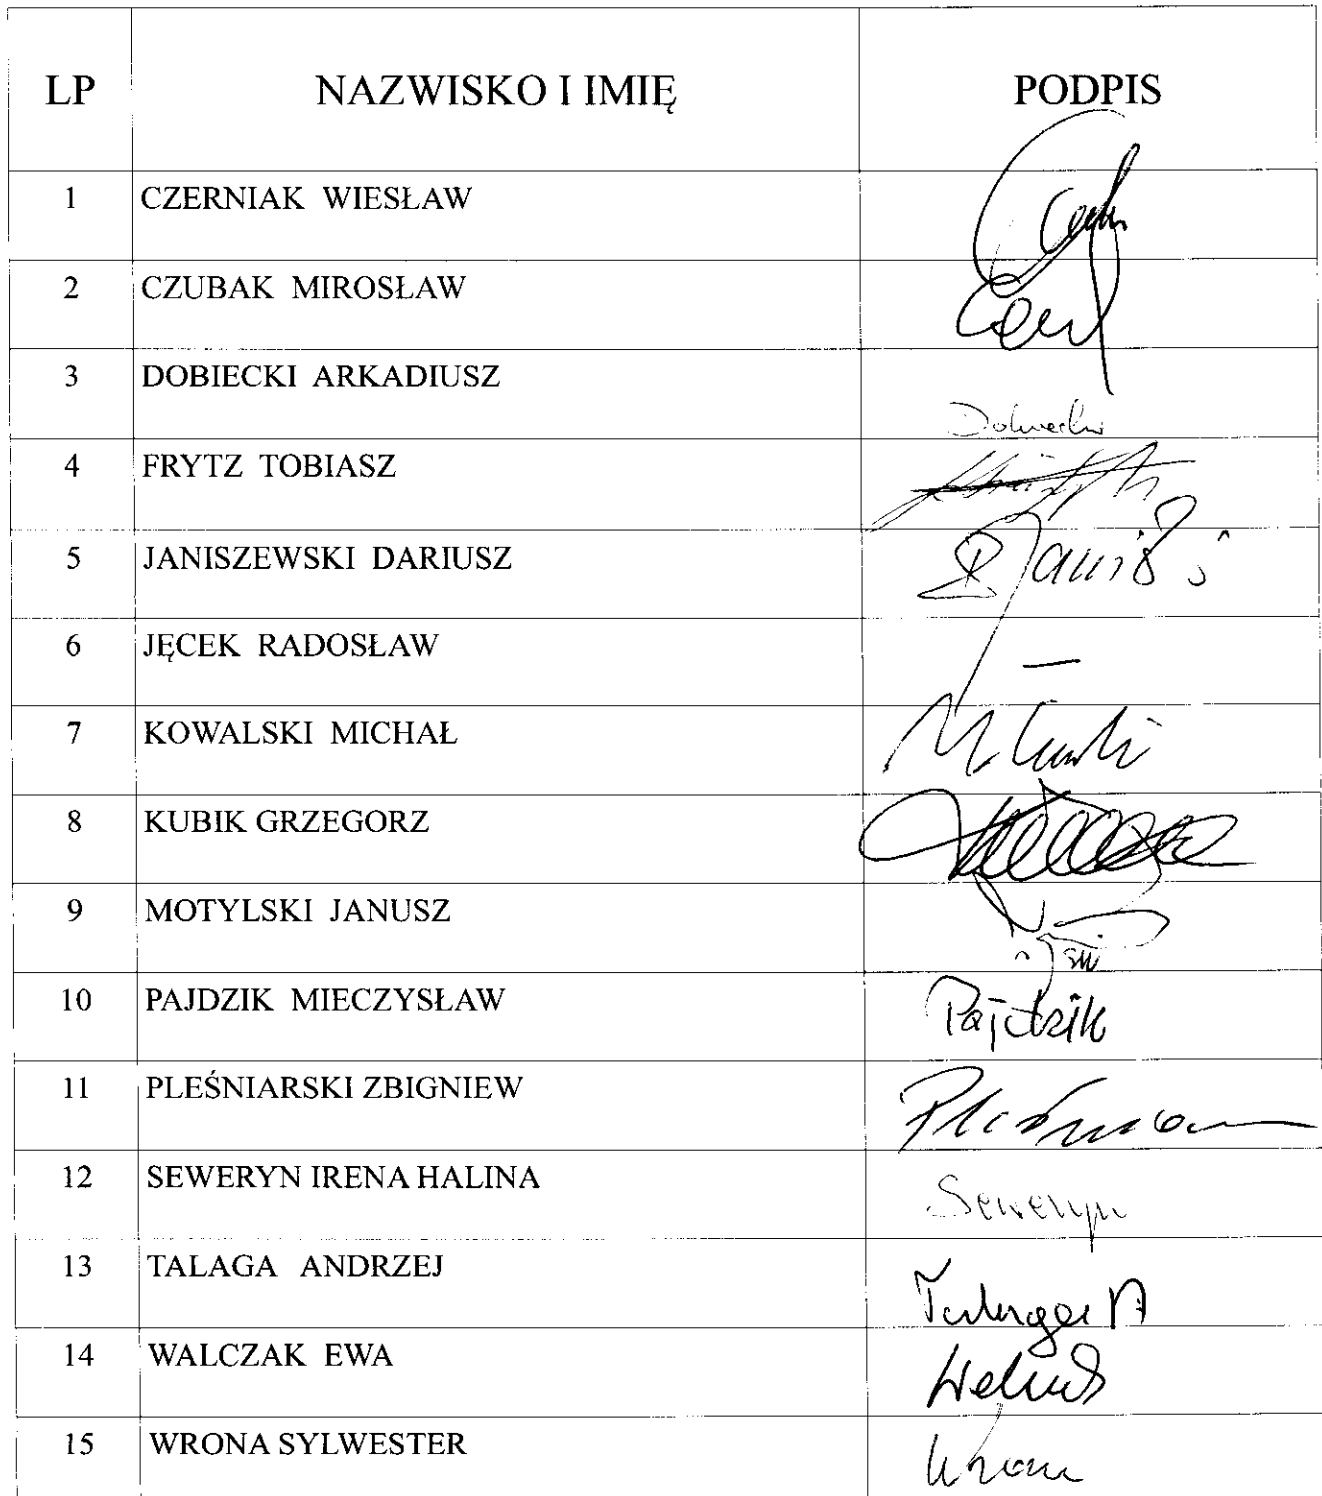 LP NAZWISKO I IMIĘ PODPIS
1 CZERNIAK WIESŁAW
2 CZUBAK MIROSŁAW
3 DOBIECKI ARKADIUSZ
4 FRYTZ TOBIASZ
5 JANISZEWSKI DARIUSZ
6 JĘCEK RADOSŁAW —
7 KOWALSKI MICHAŁ
8 KUBIK GRZEGORZ
9 MOTYLSKI JANUSZ
10 PAJDZIK MIECZYSŁAW Pajdzik
11 PLEŚNIARSKI ZBIGNIEW
12 SEWERYN IRENA HALINA Seweryn
13 TALAGA ANDRZEJ Talaga A
14 WALCZAK EWA
15 WRONA SYLWESTER Wrona